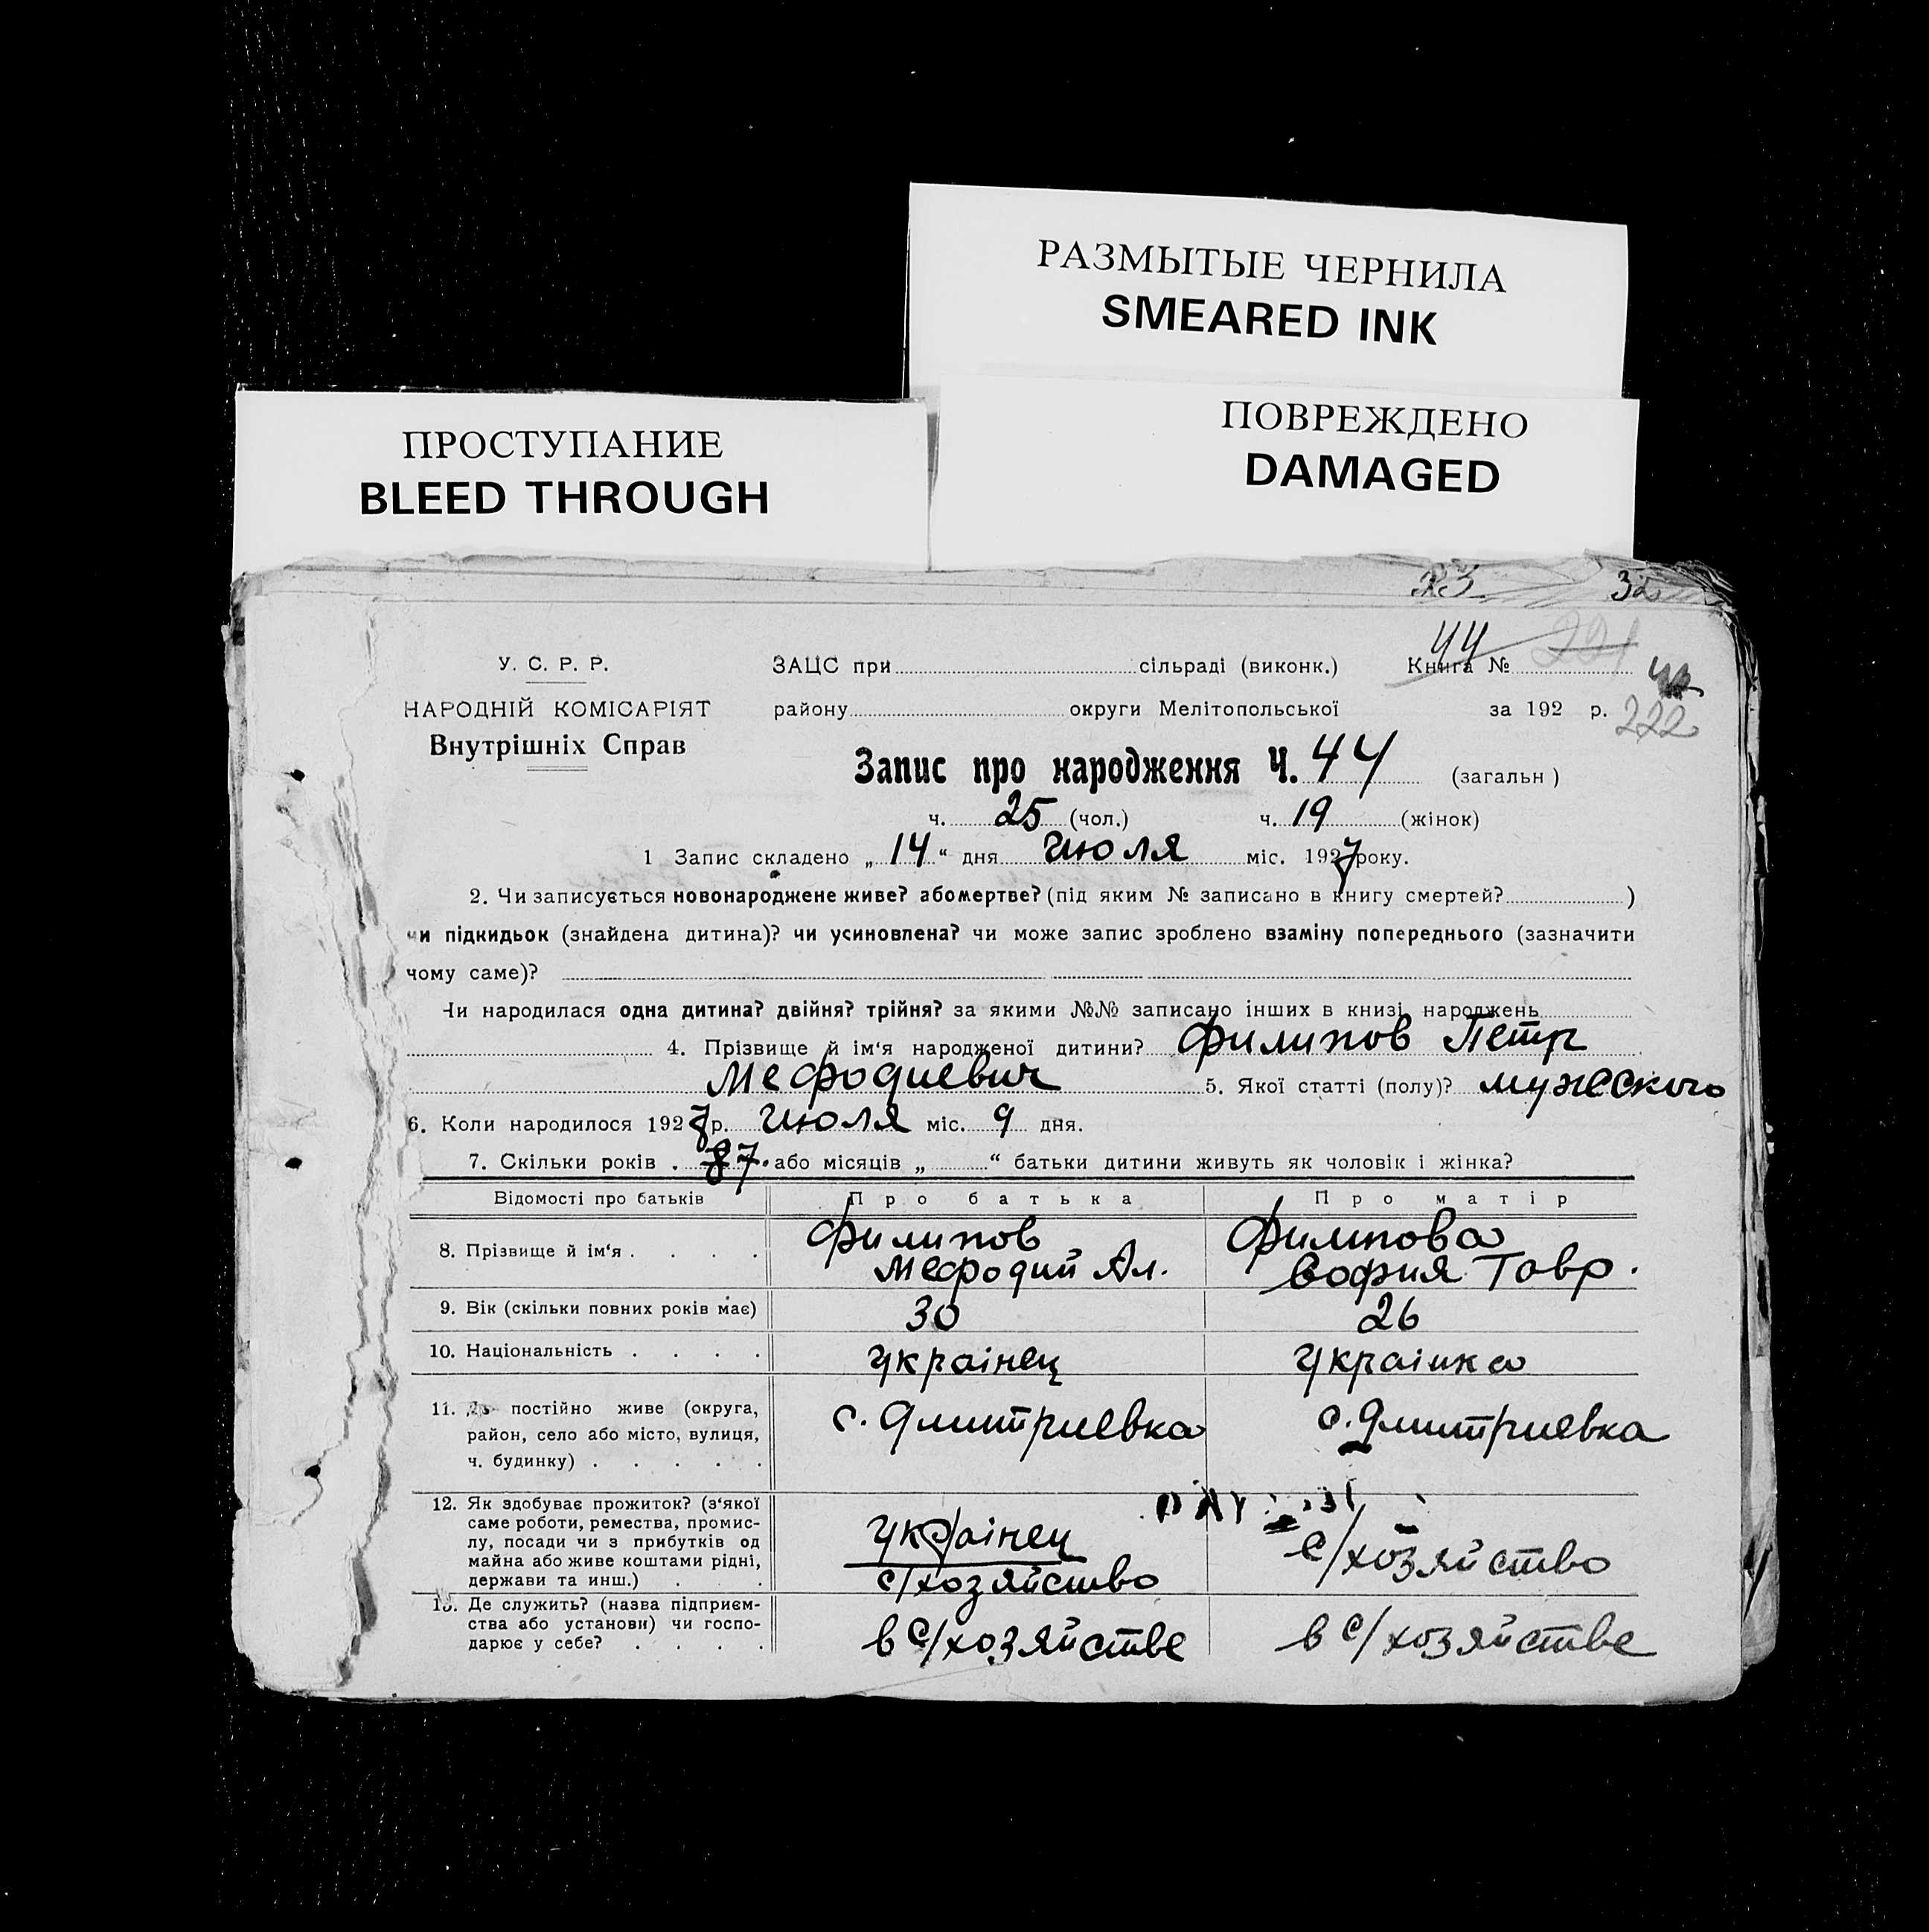 РАЗМЫТЫЕ ЧЕРНИЛА
SMEARED INK
ПОВРЕЖДЕНО
DAMAGED
ПРОСТУПАНИЕ
BLEED THROUGH
23 32
44 221
У. С. Р. Р. ЗАЦС при сільраді (виконк.) Книга №
НАРОДНІЙ КОМІСАРІЯТ району округи Мелітопольської за 192 р. 222
Внутрішніх Справ
Запис про народження Ч. 44 (загальн)
ч. 25 (чол.) ч. 19 (жінок)
1 Запис складено „ 14 “ дня июля міс. 1927 року.
2. Чи записується новонароджене живе? абомертве? (під яким № записано в книгу смертей? )
чи підкидьок (знайдена дитина)? чи усиновлена? чи може запис зроблено взаміну попереднього (зазначити
чому саме)?
Чи народилася одна дитина? двійня? трійня? за якими №№ записано інших в книзі народжень
4. Прізвище й ім‘я народженої дитини? Филипов Петр
Мефодиевич 5. Якої статті (полу)? мужеского
6. Коли народилося 1927 р. июля міс. 9 дня.
7. Скільки років . 7. або місяців „ “ батьки дитини живуть як чоловік і жінка?
Відомості про батьків Про батька Про матір
8. Прізвище й ім‘я . . . . Филипов Мефодий Ал. Филипова София Тавр.
9. Вік (скільки повних років має) 30 26
10. Національність . . . . Украінец Украінка
11. Де постійно живе (округа, с. Дмитриевка с. Дмитриевка
район, село або місто, вулиця,
ч. будинку) . . . . .
12. Як здобуває прожиток? (з‘якої
саме роботи, ремества, промис-
лу, посади чи з прибутків од Украінец с/хозяйство
майна або живе коштами рідні,
держави та инш.) . . с/хозяйство
13. Де служить? (назва підприєм-
ства або установи) чи госпо- в с/хозяйстве в с/хозяйстве
дарює у себе? . . . .